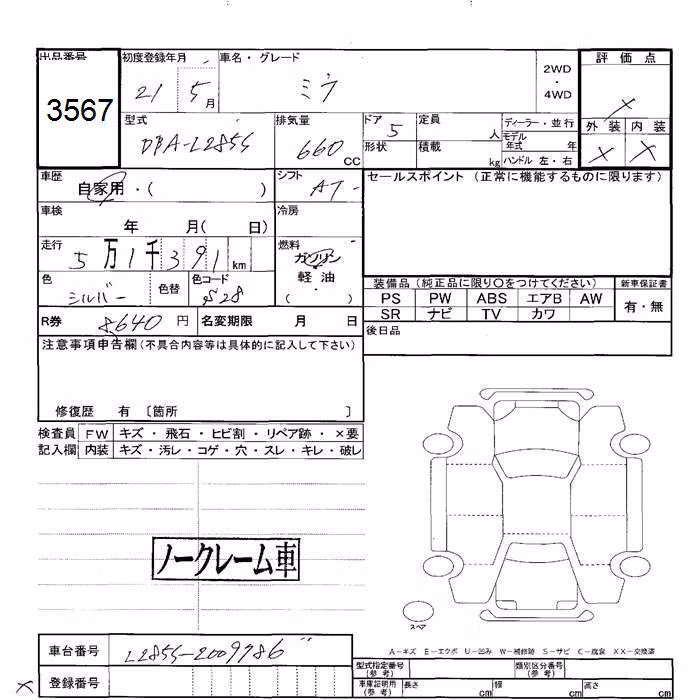 出品番号 初度登録年月 車名・グレード 評価点
3567 21 5月 ミラ 2WD・4WD ×
型式 排気量 ドア 定員 ディーラー・並行 外装 内装
DBA-L285S 660 CC 5 人 モデル年式 年 × ×
形状 積載 kg ハンドル 左・右
車歴 シフト セールスポイント (正常に機能するものに限ります)
自家用・( ) AT
車検 冷房
年 月( 日)
走行 燃料
5万1千391km ガソリン
色 色替 色コード 軽油
シルバー S28 ( )
装備品 (純正品に限り○をつけてください) 新車保証書
PS PW ABS エアB AW 有・無
SR ナビ TV カワ
R券 8640円 名変期限 月 日
後日品
注意事項申告欄(不具合内容等は具体的に記入して下さい)
修復歴 有 〔箇所 〕
検査員 FW キズ・飛石・ヒビ割・リペア跡・×要
記入欄 内装 キズ・汚レ・コゲ・穴・スレ・キレ・破レ
ノークレーム車
スペア
A-キズ E-エクボ U-凹み W-補修跡 S-サビ C-腐食 XX-交換済
車台番号 L285S-2009786
型式指定番号(参考) 類別区分番号(参考)
× 登録番号
車庫証明用(参考) 長さ cm 幅 cm 高さ cm